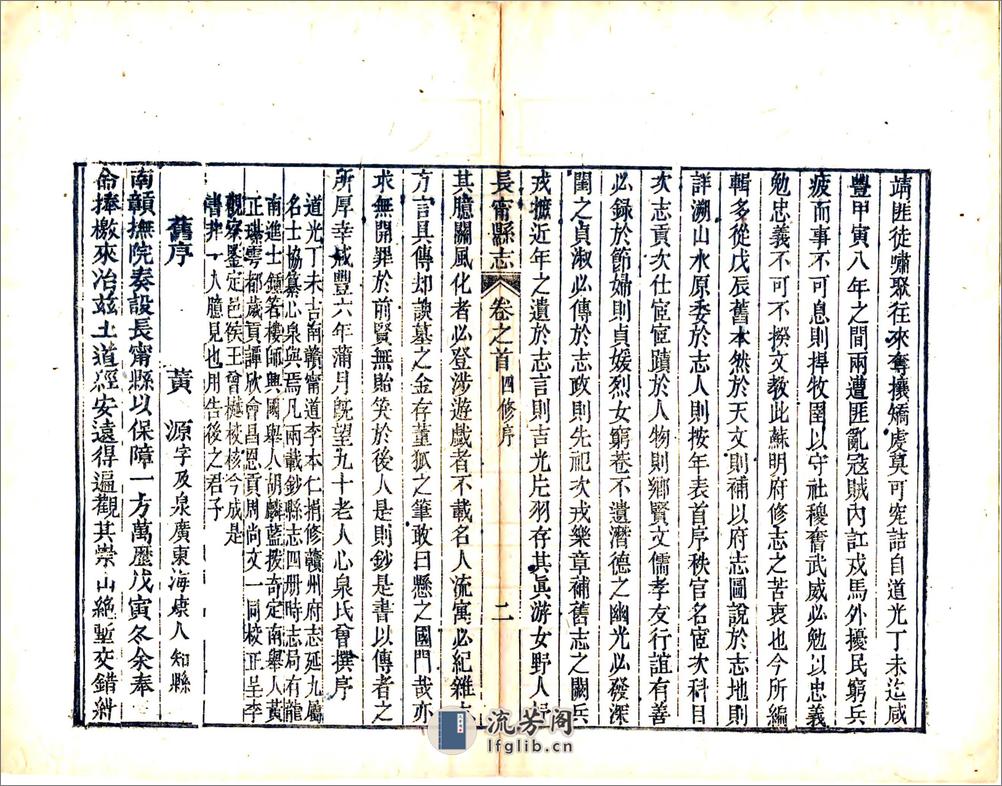 靖匪徒嘯聚往來奪攘嬌虔莫可究詰自道光丁未迄咸
豐甲寅八年之間兩遭匪亂寇賊內訌戎馬外擾民窮兵
疲而事不可息則捍牧圉以守社稷奮武威必勉以忠義
勉忠義不可不揆文教此蘇明府修志之苦衷也今所編
輯多從戊辰舊本然於天文則補以府志圖說於志地則
詳溯山水原委於志人則按年表首序秩官名宦次科目
次志貢次仕宦宦蹟於人物則鄉賢文儒孝友行誼有善
必錄於節婦則貞媛烈女窮巷不遺潛德之幽光必發深
閨之貞淑必傳於志政則先祀次戎樂章補舊志之闕兵
戎摭近年之遺於志言則吉光片羽存其眞游女野人
長甯縣志 卷之首 四修序 二
其臆關風化者必登涉遊戲者不載名人流寓必紀雜
方言具傳却諛墓之金存董狐之筆敢曰懸之國門哉亦
求無開罪於前賢無貽笑於後人是則鈔是書以傳者之
所厚幸咸豐六年蒲月旣望九十老人心泉氏曾撰序
道光丁未吉南贑甯道李本仁捐修贑州府志延九屬
名士協纂心泉與焉凡兩載鈔縣志四册時志局有龍
南進士鍾峇樓師興國舉人胡麟藍拨奇定南舉人黃
正琜雩都歲貢譚欣會昌恩貢周尚文一同校正呈李
觀察鑒定邑侯王曾樾校核今成是
請非一人臆見也用告後之君子
舊序 黃 源字及泉廣東海康人知縣
南贑撫院奏設長甯縣以保障一方萬歷戊寅冬余奉
命捧檄來治兹土道經安遠得遍觀其崇山絶塹交錯紏
流芳阁
lfglib.cn